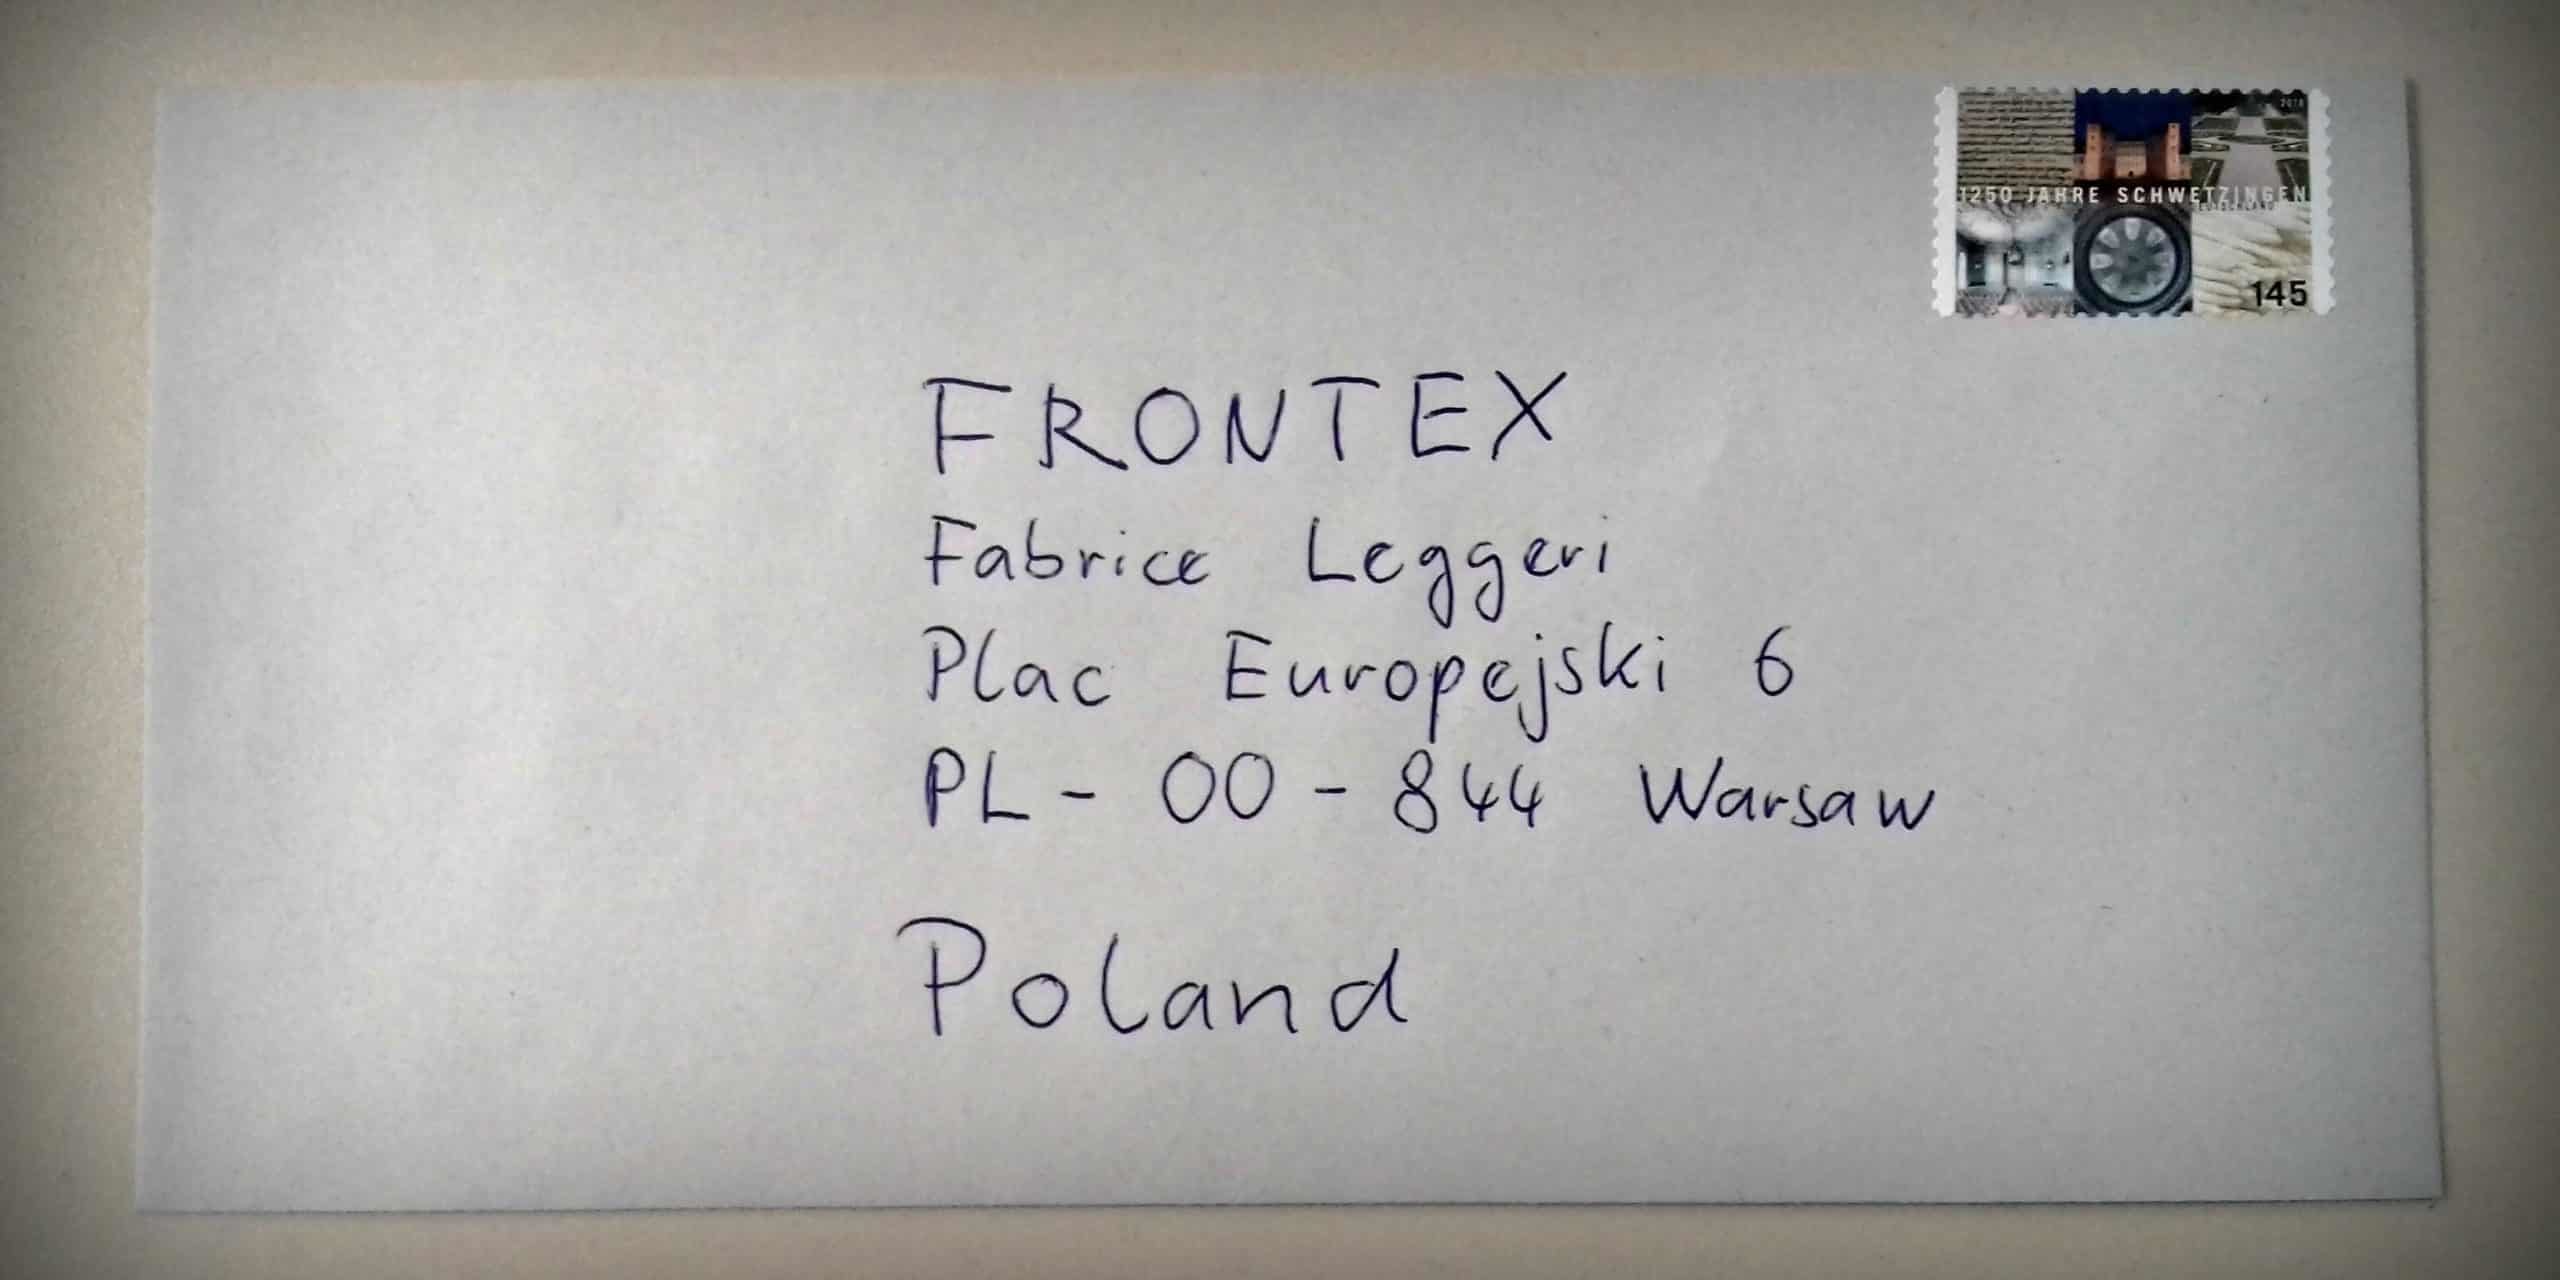 2016
1250 JAHRE SCHWETZINGEN
DEUTSCHLAND
145
FRONTEX
Fabrice Leggeri
Plac Europejski 6
PL - 00 - 844 Warsaw
Poland